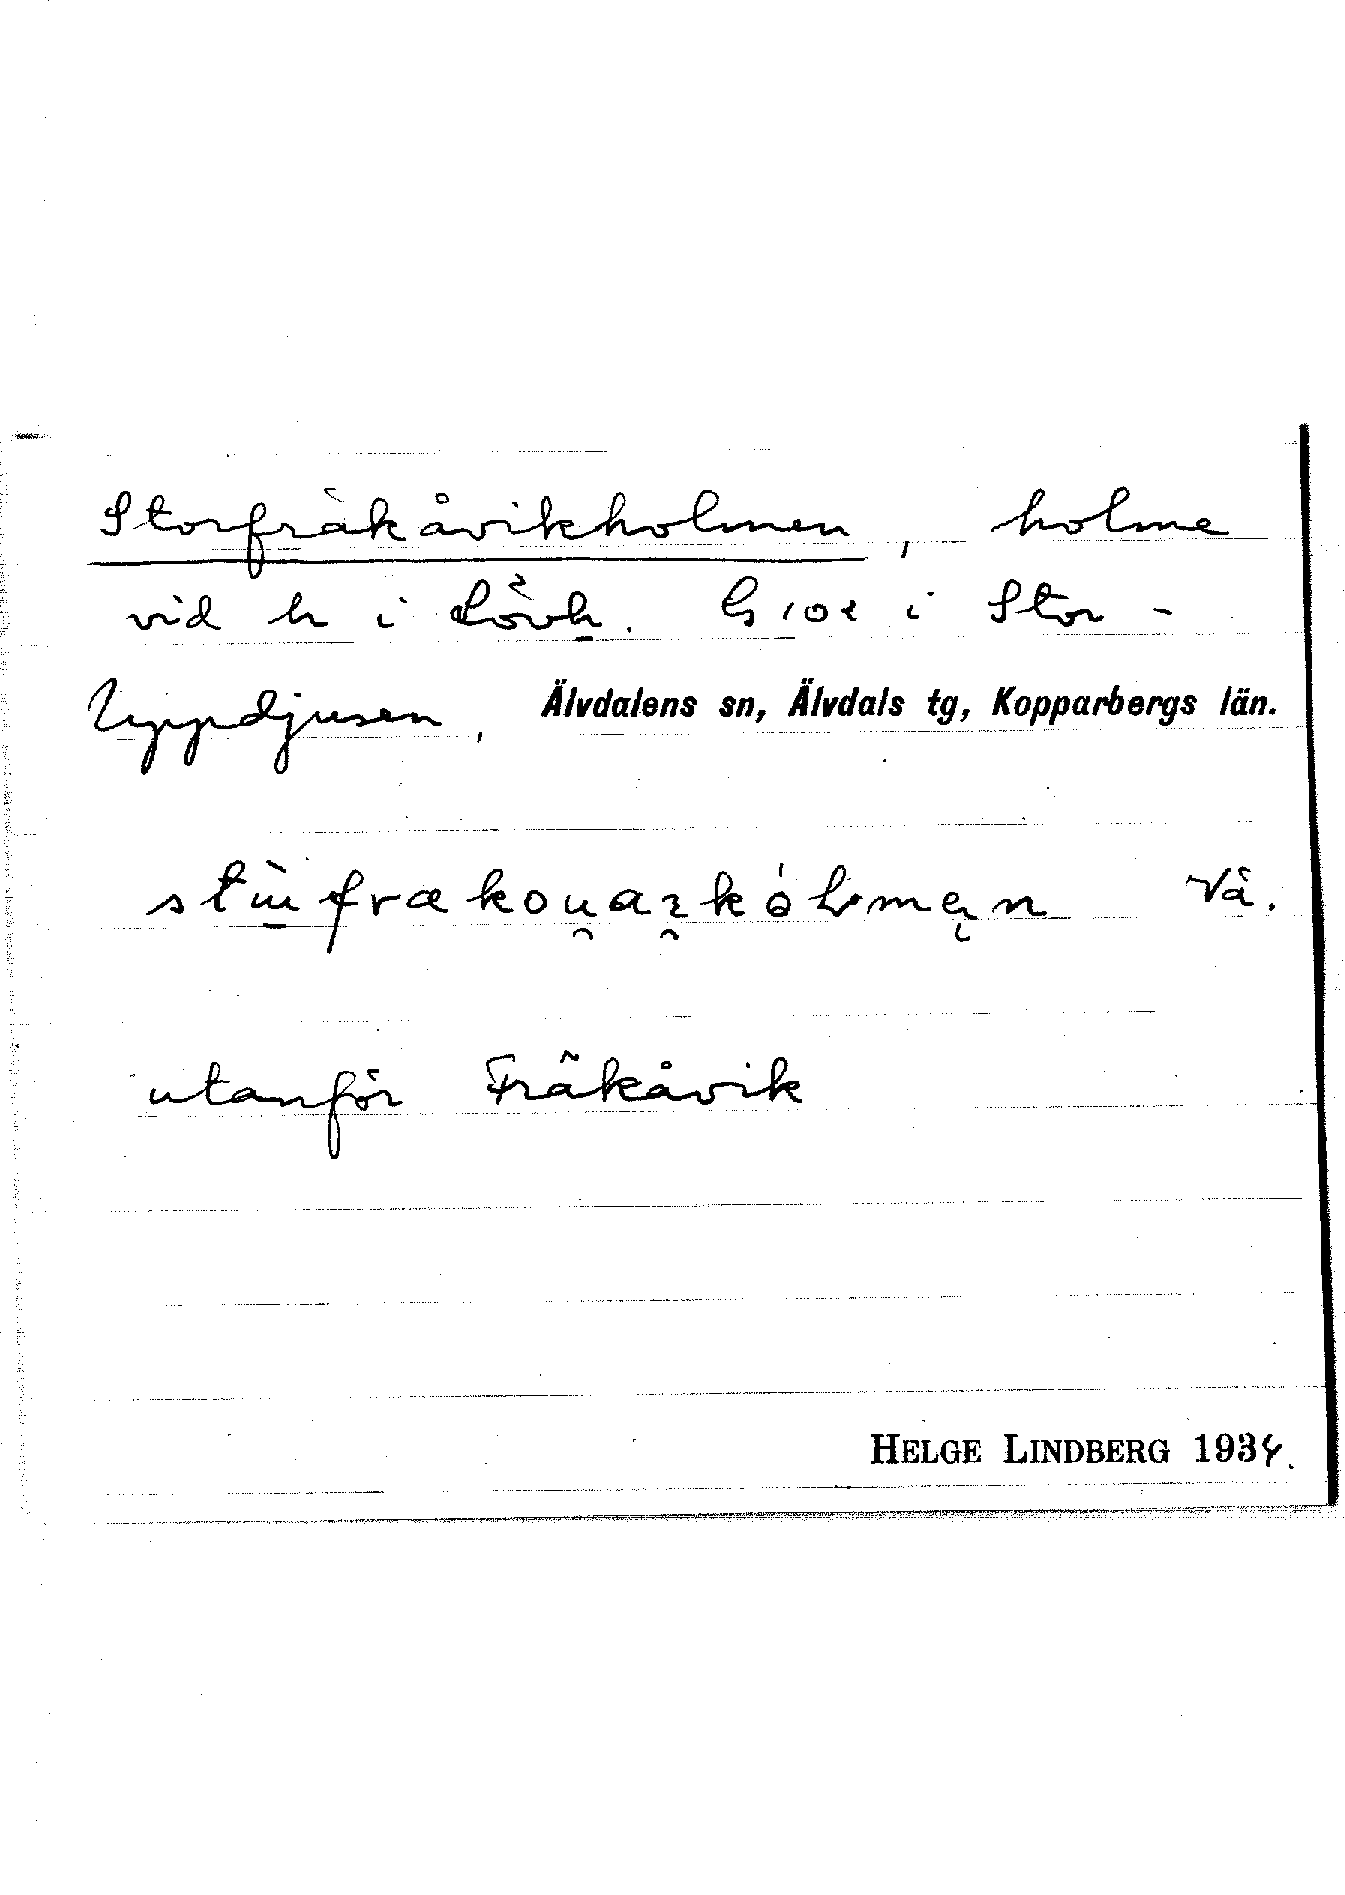 Storfräkåvikholmen, holme
vid h i Lövh. G 102 i Stor-
Uppdjusen, Älvdalens sn, Älvdals tg, Kopparbergs län.
Vå.
utanför Fräkåvik
HELGE LINDBERG 1934.